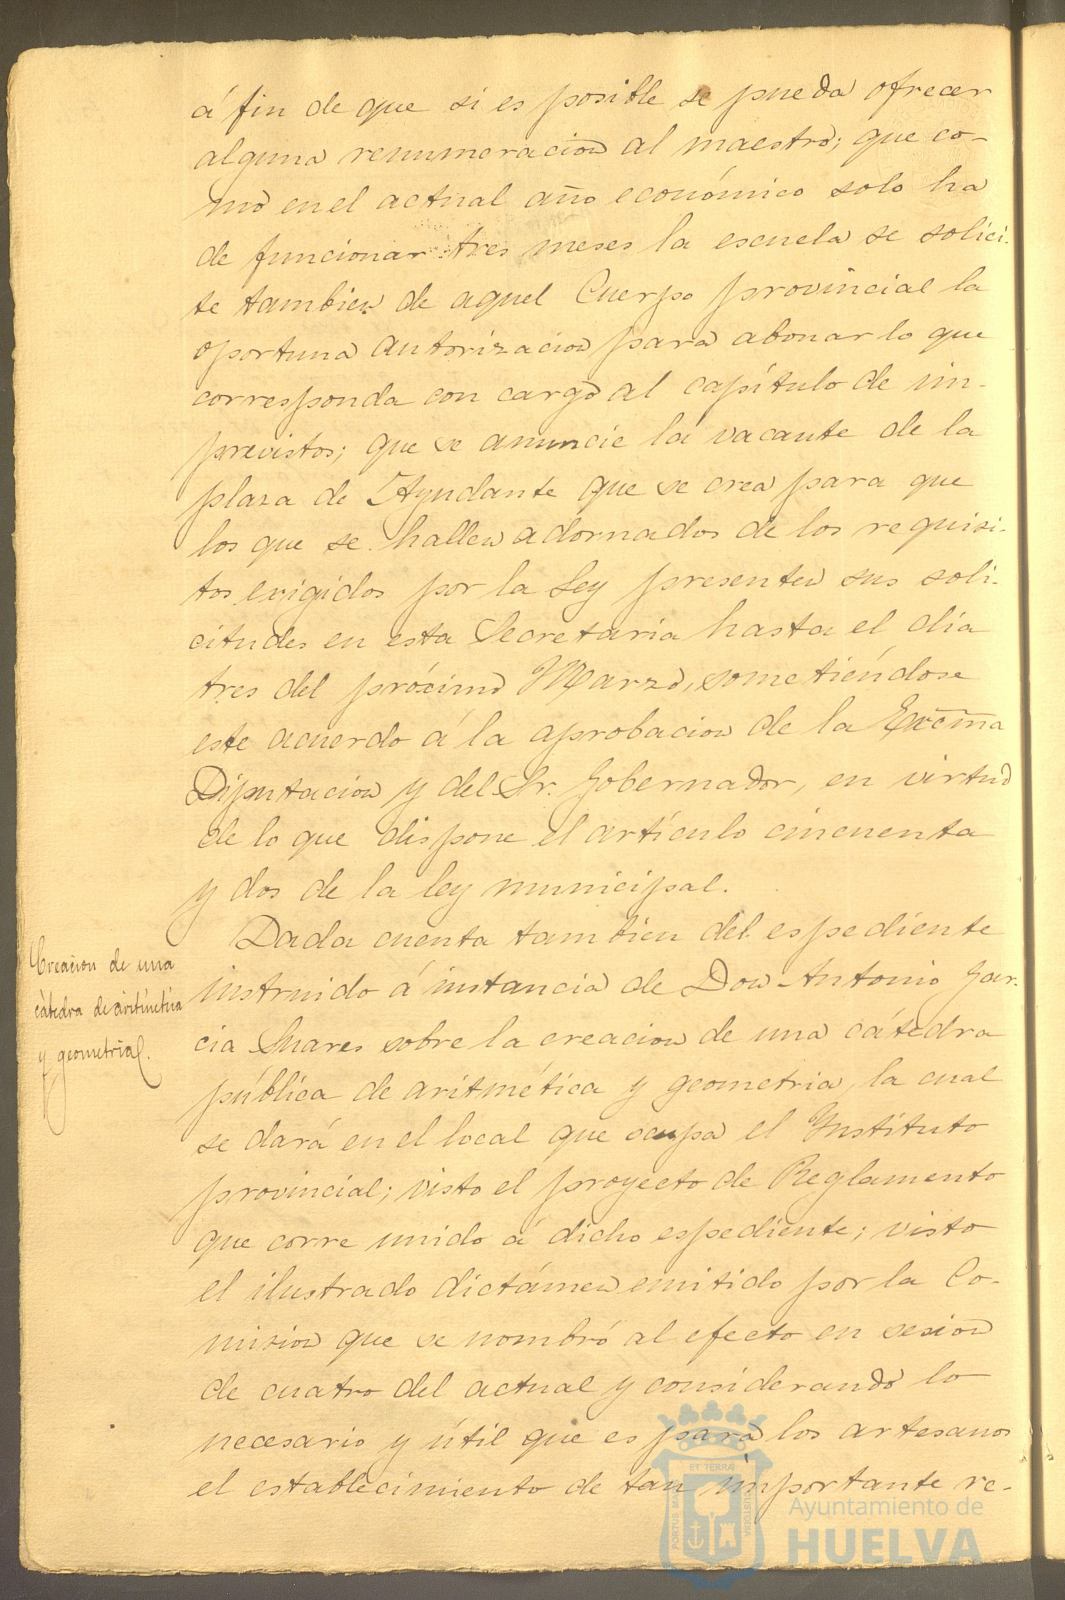 á fin de que si es posible se pueda ofrecer
alguna renumeracion al maestro; que co-
mo en el actual año económico solo ha
de funcionar tres meses la escuela se solici-
te tambien de aquel Cuerpo provincial la
oportuna autorizacion para abonar lo que
corresponda con cargo al capítulo de im-
previstos; que se anuncie la vacante de la
plaza de Ayudante que se crea para que
los que se hallen adornados de los requisi-
tos exigidos por la Ley presenten sus soli-
citudes en esta Secretaria hasta el dia
tres del próximo Marzo, sometiéndose
este acuerdo á la aprobacion de la Excma
Diputacion y del Sr. Gobernador, en virtud
de lo que dispone el artículo cincuenta
y dos de la ley municipal.
Creacion de una
cátedra de aritmética
y geometria.
Dada cuenta tambien del espediente
instruido á instancia de Don Antonio Gar-
cia Suares sobre la creacion de una cátedra
pública de aritmética y geometria, la cual
se dará en el local que ocupa el Instituto
provincial; visto el proyecto de Reglamento
que corre unido á dicho espediente; visto
el ilustrado dictámen emitido por la Co-
mision que se nombró al efecto en sesion
de cuatro del actual y considerando lo
necesario y útil que es para los artesanos
el establecimiento de tan importante re-
PORTUS MARIS ET TERRAE CUSTODIA
Ayuntamiento de
HUELVA